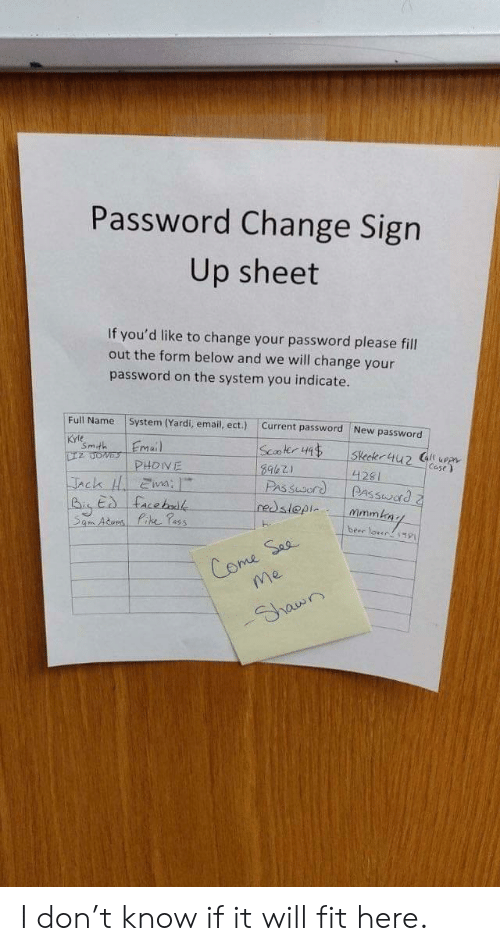 Password Change Sign
Up sheet
If you'd like to change your password please fill
out the form below and we will change your
password on the system you indicate.
Full Name System (Yardi, email, ect.) Current password New password
Kyle Smith Email Scooter 49$ Skeeter442 (all upper case)
LIZ JONES PHONE 89621 4281
Jack H. Email Password Password 2
Big Ed facebook mmmkay
Sam Adams Pike Pass beer lover
Come See
me
-Shawn
I don't know if it will fit here.